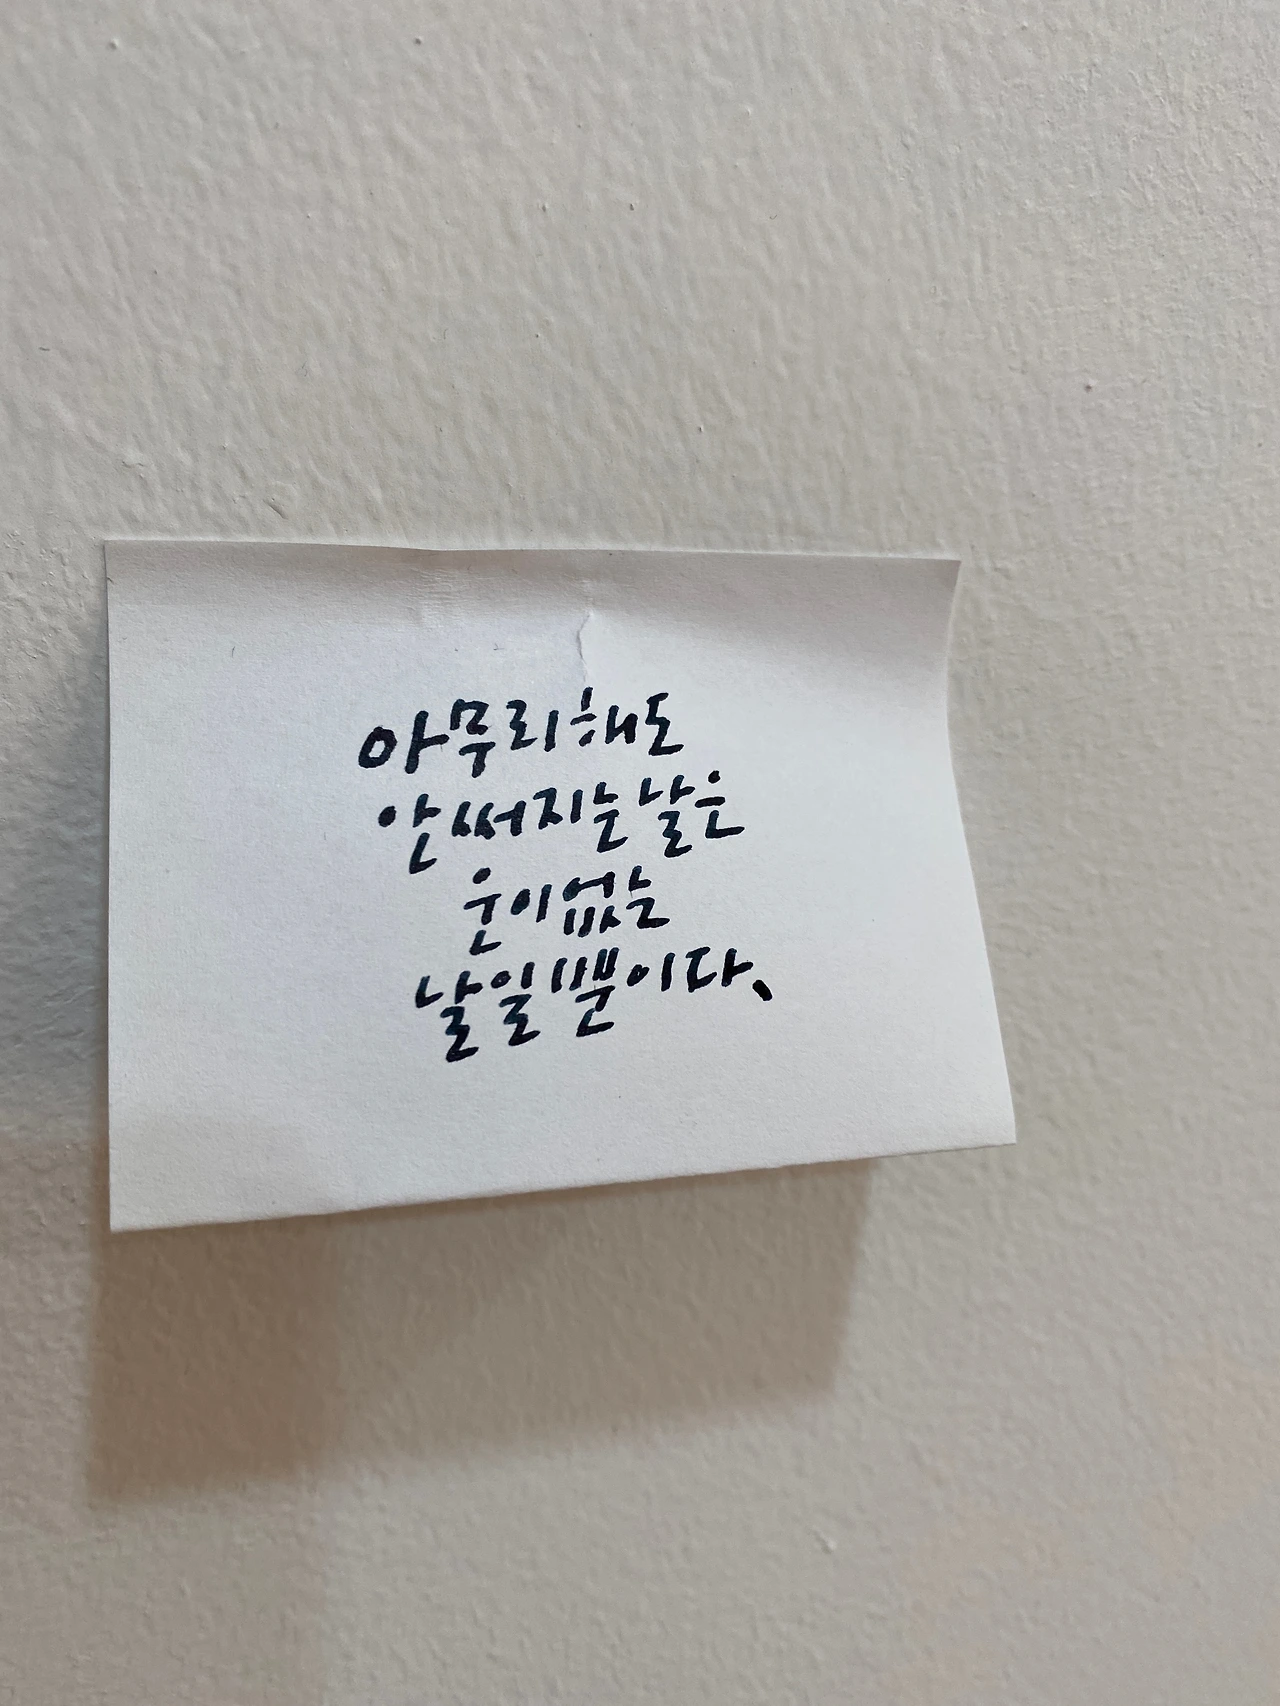 아무리해도
안써지는날은
운이없는
날일뿐이다.